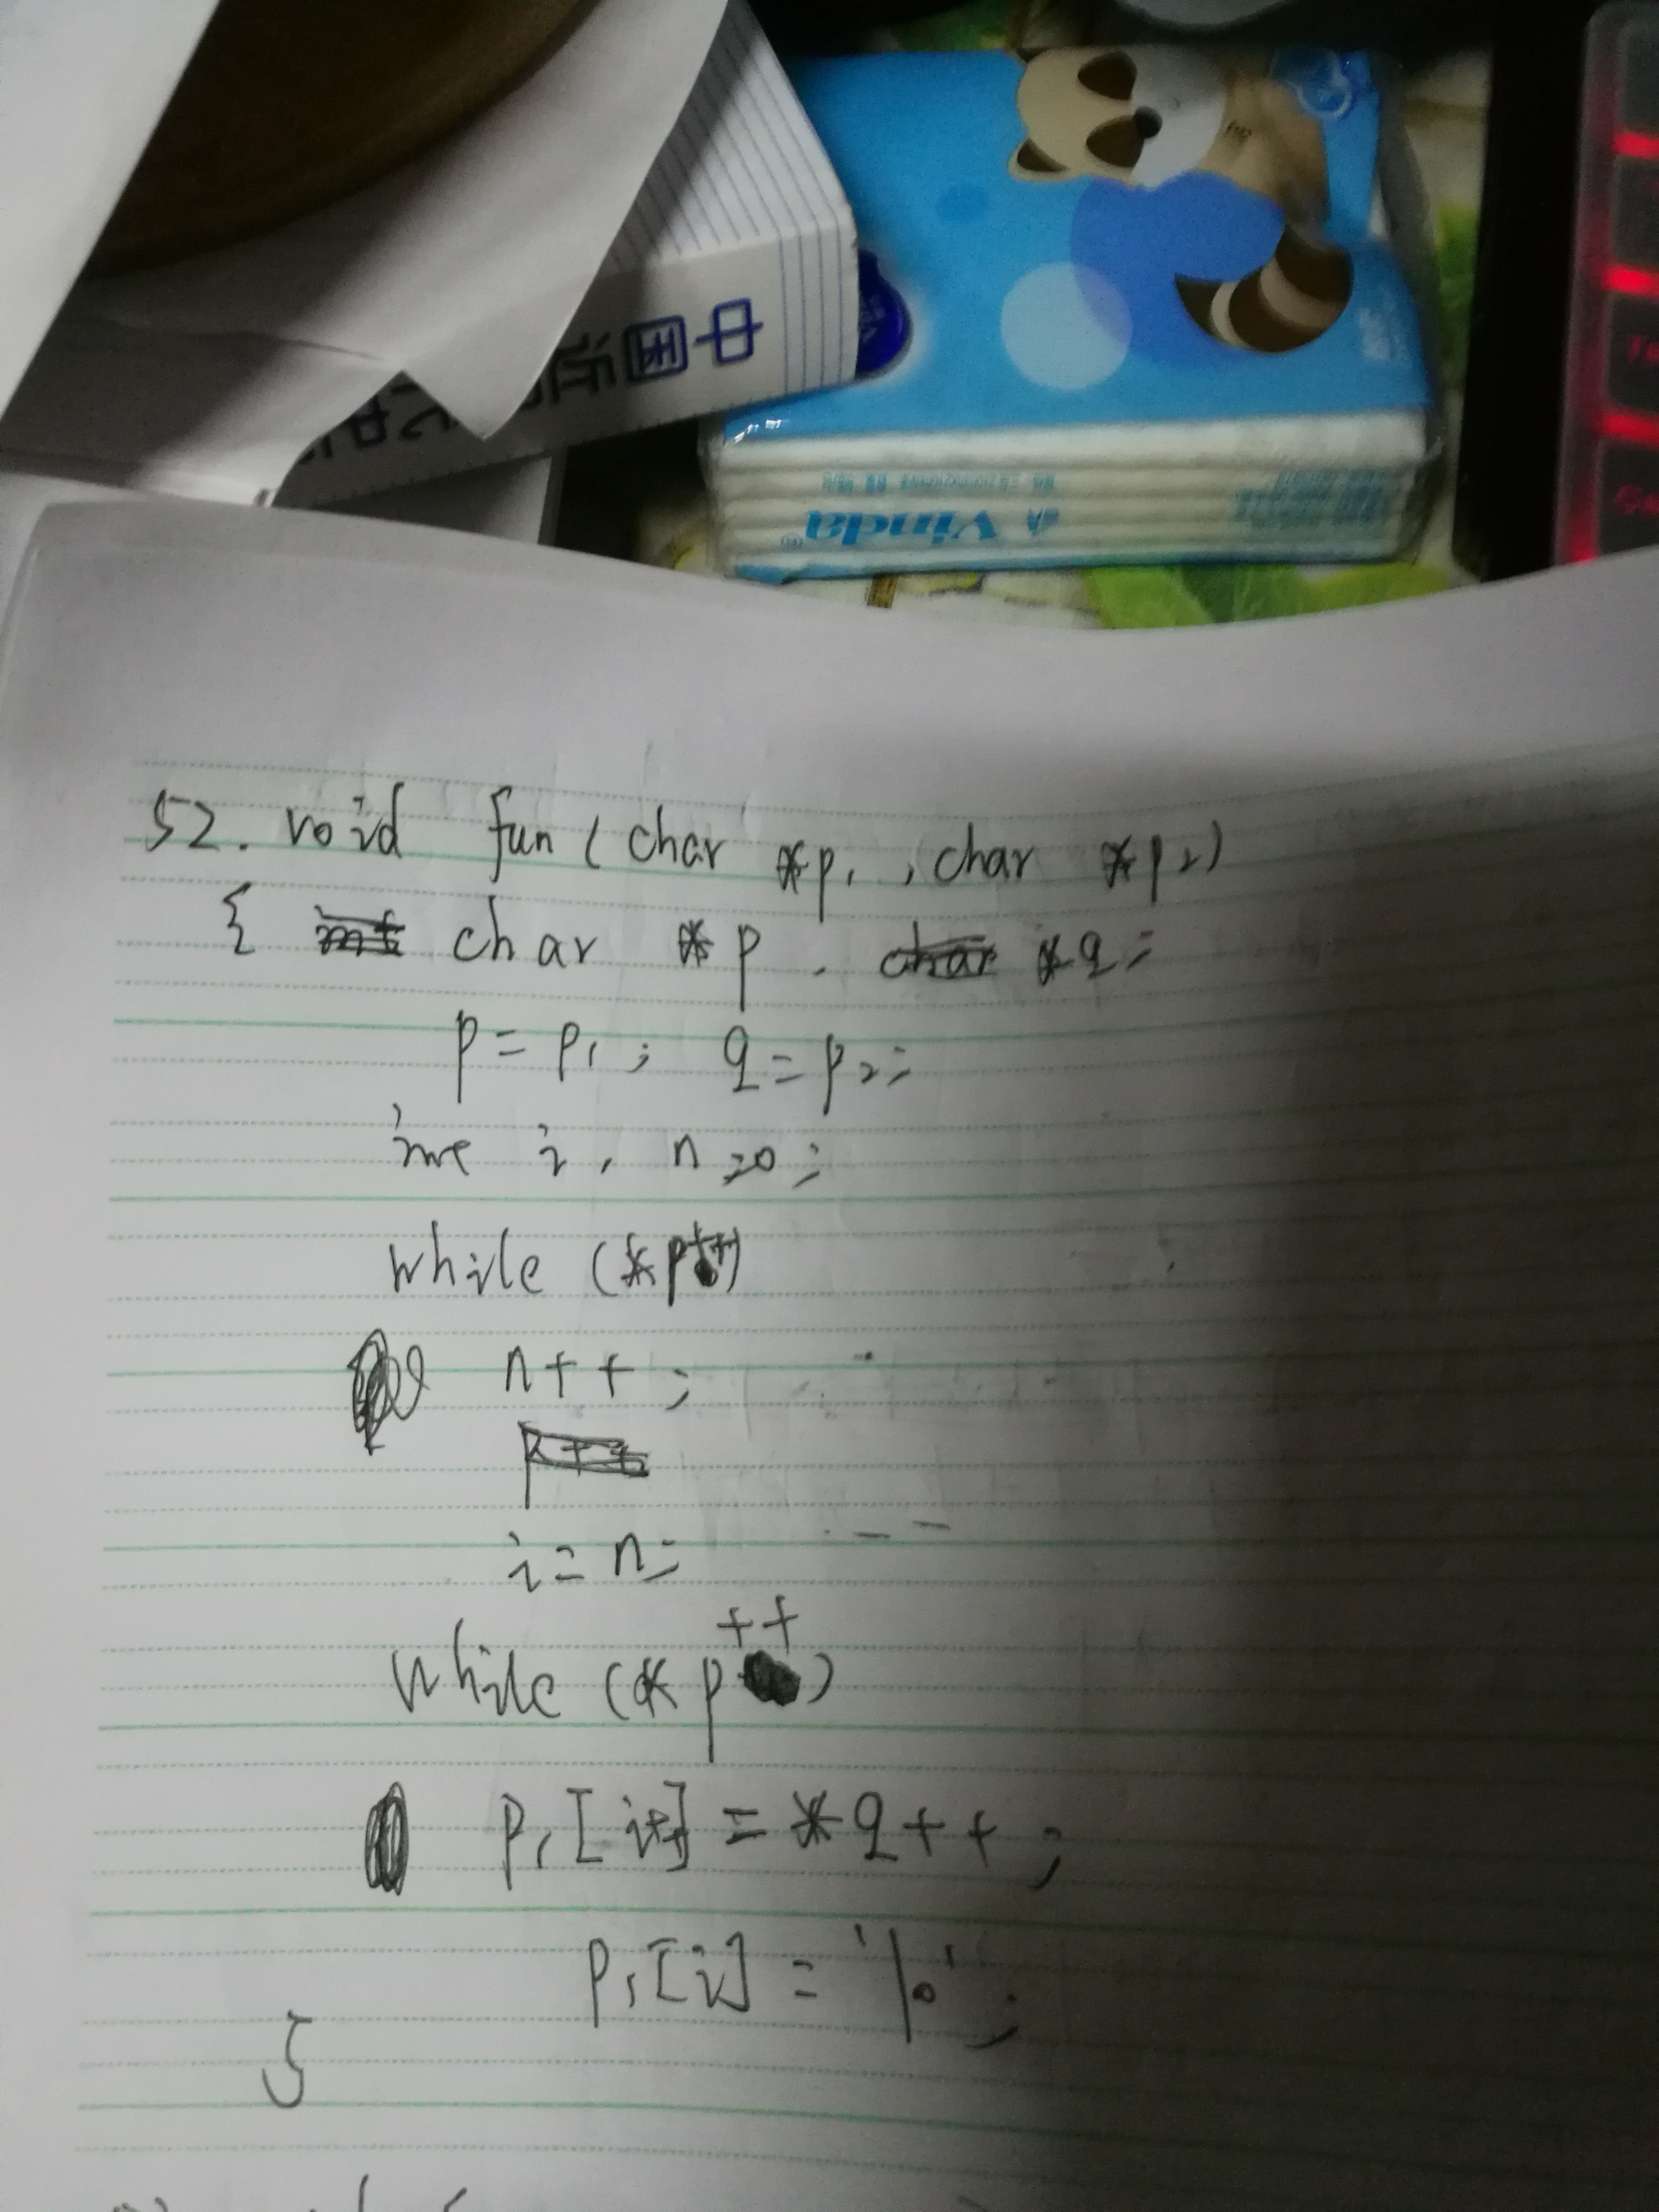 中国近
Vinda
52. void fun (char *p1, char *p2)
{ char *p, *q;
p = p1; q = p2;
int i, n=0;
while (*p++)
n++;
i = n;
while (*p++)
p1[i++] = *q++;
p1[i] = '\0';
}